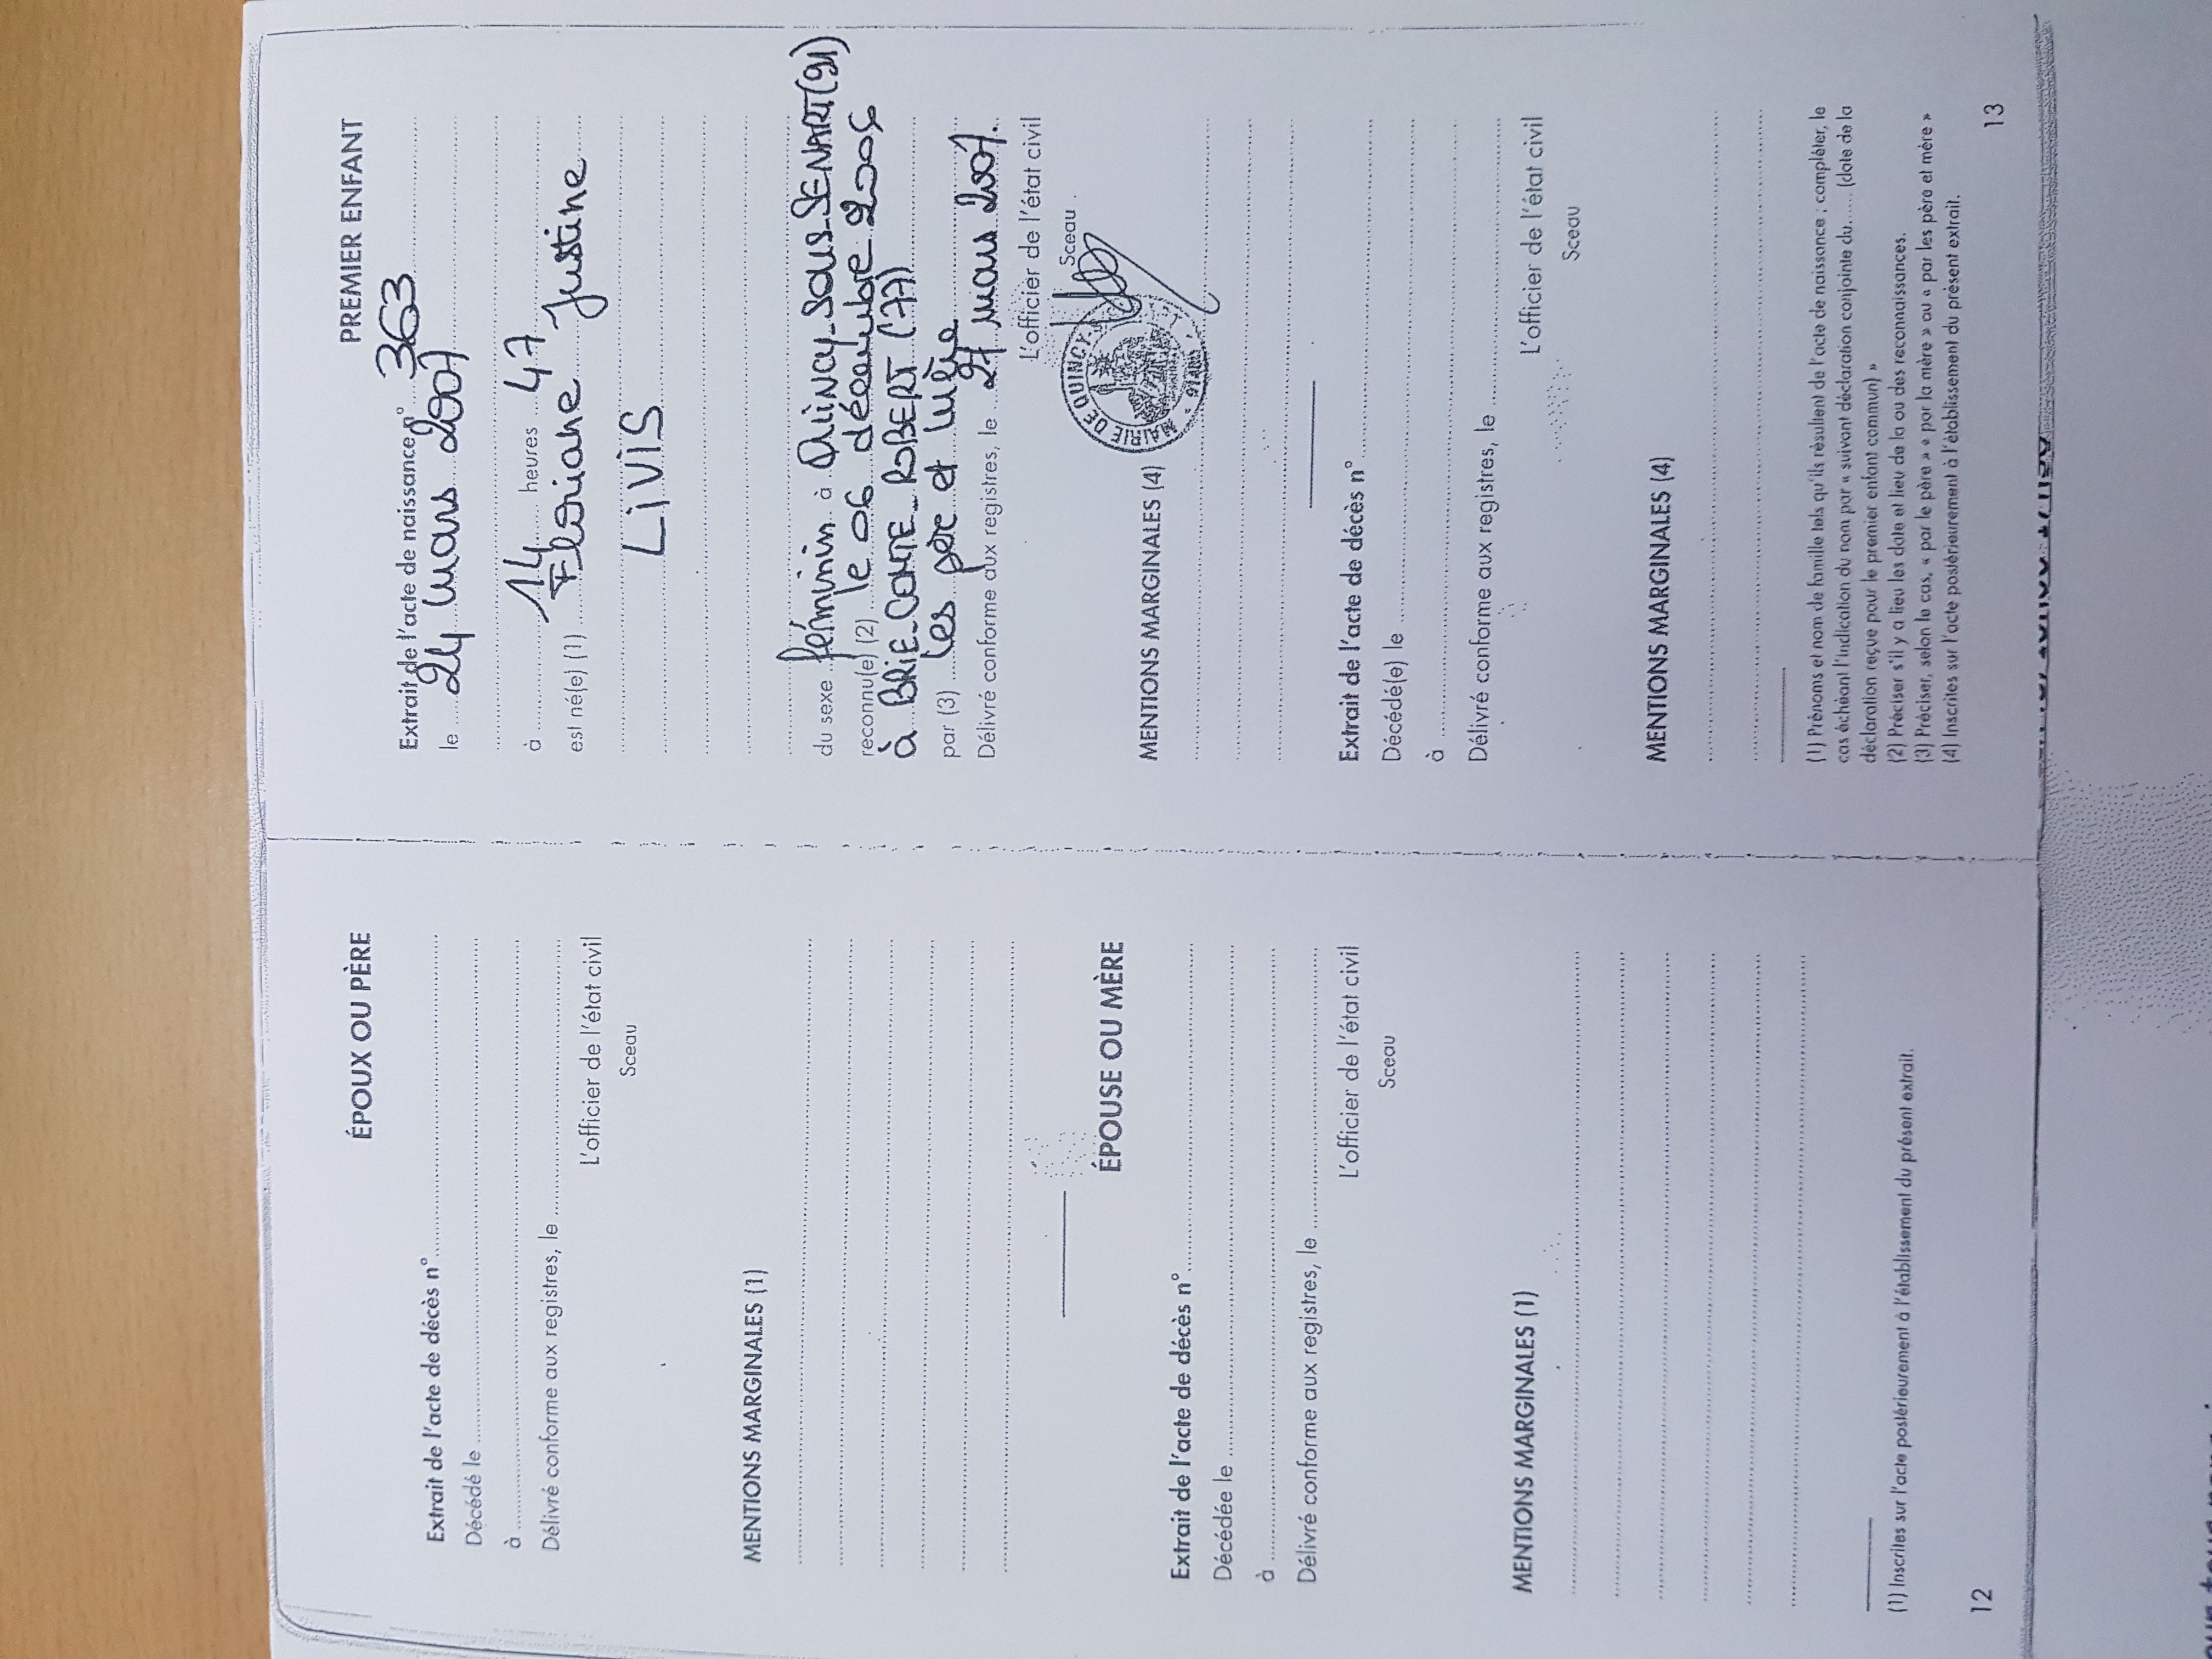 ÉPOUX OU PÈRE
Extrait de l'acte de décès n°
Décédé le
à
Délivré conforme aux registres, le
L'officier de l'état civil
Sceau
MENTIONS MARGINALES (1)
ÉPOUSE OU MÈRE
Extrait de l'acte de décès n°
Décédée le
à
Délivré conforme aux registres, le
L'officier de l'état civil
Sceau
MENTIONS MARGINALES (1)
(1) Inscrites sur l'acte postérieurement à l'établissement du présent extrait.
12
PREMIER ENFANT
Extrait de l'acte de naissance n° 363
le 24 mars 2007
à 14 heures 47
est né(e) (1) Floriane Justine
LIVIS
du sexe féminin à QUINCY-SOUS-SENART (91)
reconnu(e) (2) le 06 décembre 2006
à BRIE-COMTE-ROBERT (77)
par (3) les père et mère
Délivré conforme aux registres, le 27 mars 2007.
L'officier de l'état civil
Sceau
MAIRIE DE QUINCY
MENTIONS MARGINALES (4)
Extrait de l'acte de décès n°
Décédé(e) le
à
Délivré conforme aux registres, le
L'officier de l'état civil
Sceau
MENTIONS MARGINALES (4)
(1) Prénoms et nom de famille tels qu'ils résultent de l'acte de naissance ; compléter, le
cas échéant l'indication du nom par « suivant déclaration conjointe du...... (date de la
déclaration reçue pour le premier enfant commun) »
(2) Préciser s'il y a lieu les date et lieu de la ou des reconnaissances.
(3) Préciser, selon le cas, « par le père » « par la mère » ou « par les père et mère »
(4) Inscrites sur l'acte postérieurement à l'établissement du présent extrait.
13